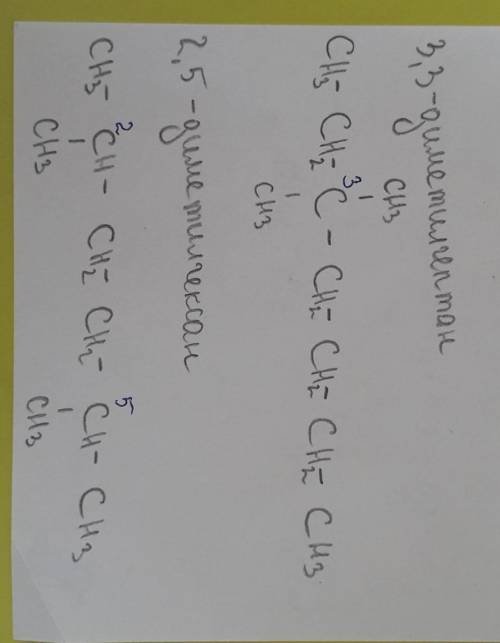 3,3-диметилгептан
CH3
CH3 - CH2 - C3 - CH2 - CH2 - CH2 - CH3
CH3
2,5-диметилгексан
CH3 - 2CH - CH2 - CH2 - 5CH - CH3
CH3 CH3